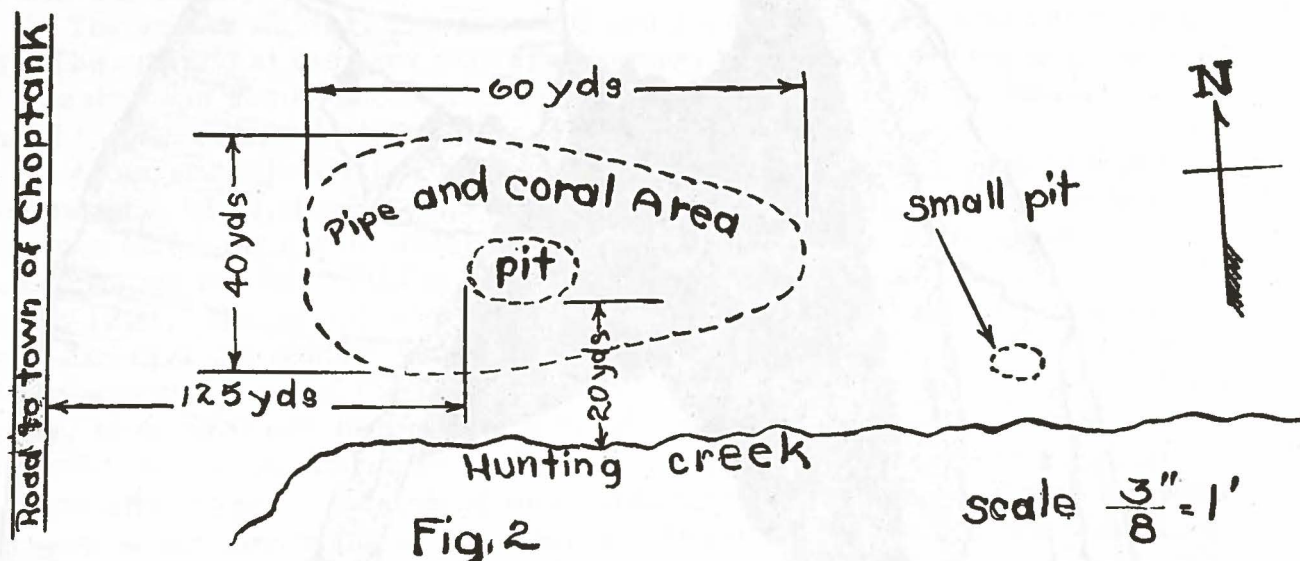 Road to town of Choptank
60 yds
N
40 yds
Pipe and coral Area
small pit
pit
20 yds
125 yds
Hunting creek
scale 3/8" = 1'
Fig. 2